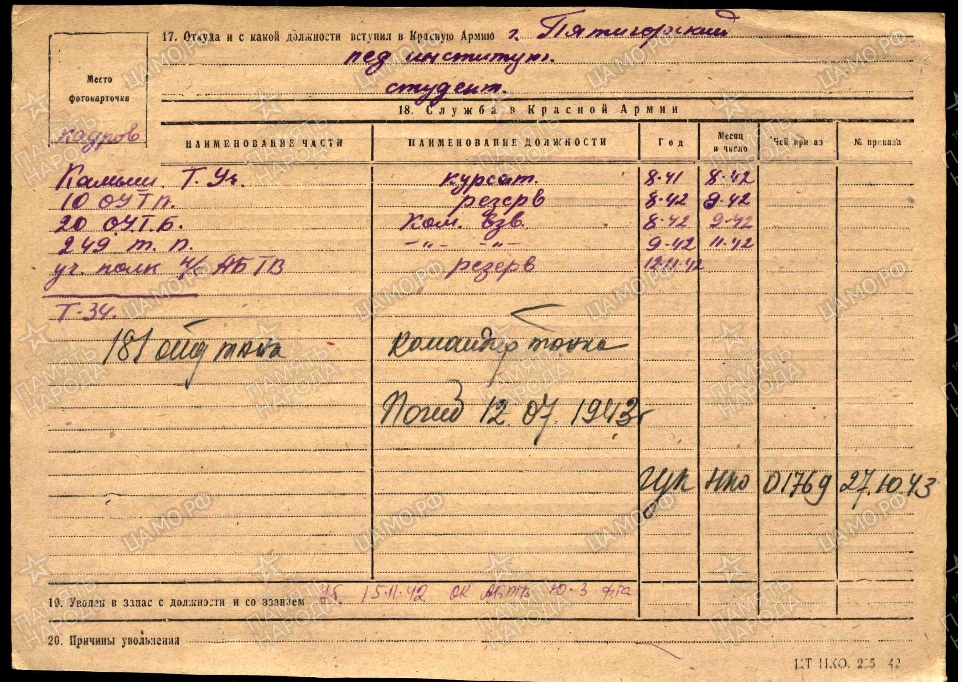 17. Откуда и с какой должности вступил в Красную Армию г. Пятигорский
пед институт.
студент.
Место
фотокарточки
кадров
18. Служба в Красной Армии
НАИМЕНОВАНИЕ ЧАСТИ НАИМЕНОВАНИЕ ДОЛЖНОСТИ Год Месяц и число Чей приказ № приказа
Камыш. Т. Уч. курсат. 8-41 8-42
10 ОУТП. резерв 8-42 8-42
20 ОУТ.Б. Ком. Взв. 8-42 9-42
249 т. п. -„- -„- 9-42 11-42
уч. полк АБТВ резерв 12-11-42
Т-34.
181 танк командир танка
Погиб 12.07.1943г
ГУК НКО 01769 27.10.43
19. Уволен в запас с должности и со званием 15.11.42 ОК Ю-З фта
20. Причины увольнения
НКО. 42
ПАМЯТЬ НАРОДА
ЦАМО.РФ